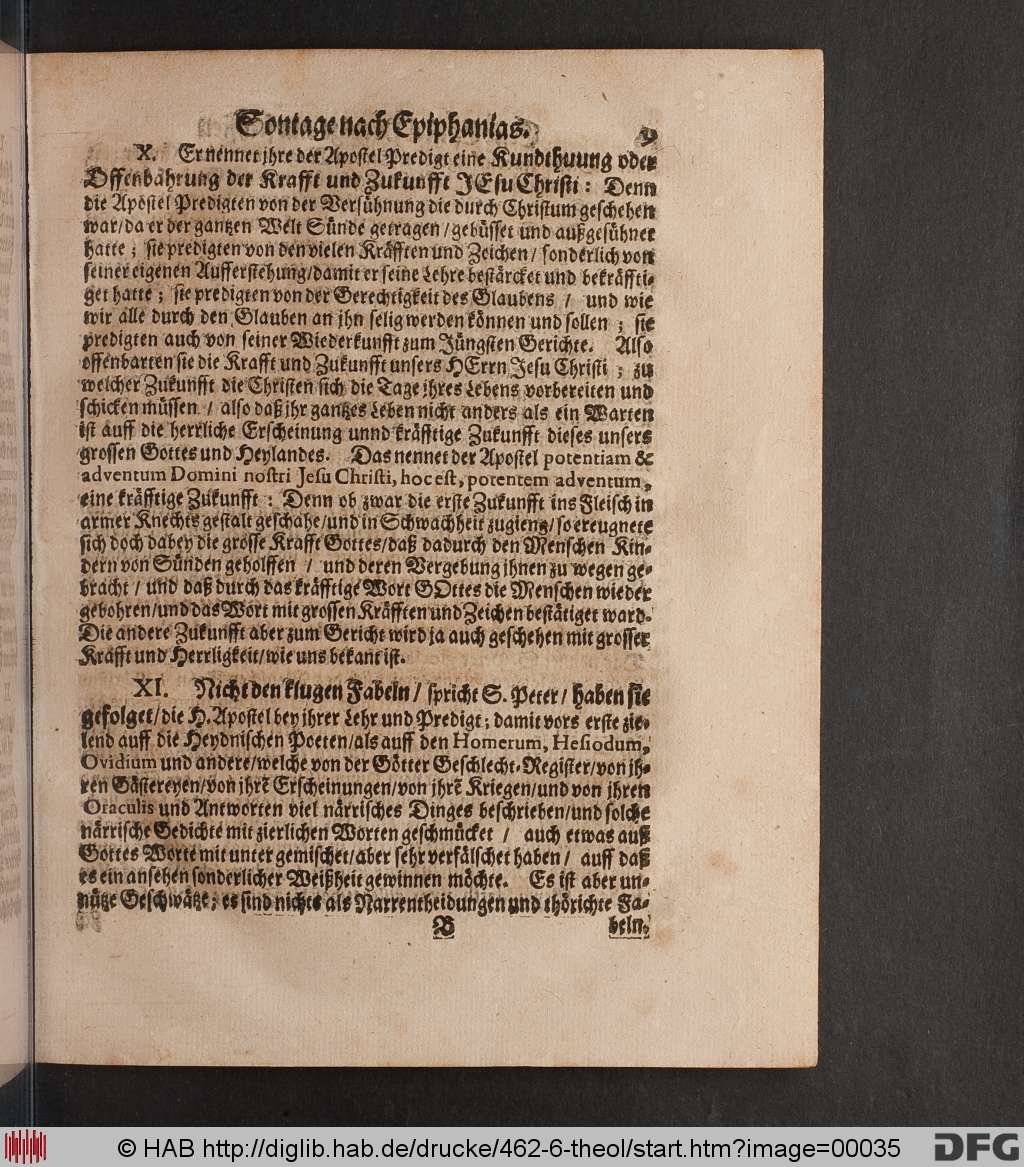 Sontage nach Epiphanias. 9
X. Er nennet jhre der Apostel Predigt eine Kundthuung oder
Offenbahrung der Krafft und Zukunfft JEsu Christi: Denn
die Apostel Predigten von der Versühnung die durch Christum geschehen
war/da er der gantzen Welt Sünde getragen/gebüsset und außgesühnet
hatte; sie predigten von den vielen Kräfften und Zeichen/sonderlich von
seiner eigenen Aufferstehung/damit er seine Lehre bestärcket und bekräffti-
get hatte; sie predigten von der Gerechtigkeit des Glaubens / und wie
wir alle durch den Glauben an jhn selig werden können und sollen; sie
predigten auch von seiner Wiederkunfft zum Jüngsten Gerichte. Also
offenbarten sie die Krafft und Zukunfft unsers HErrn Jesu Christi; zu
welcher Zukunfft die Christen sich die Tage jhres Lebens vorbereiten und
schicken müssen / also daß jhr gantzes Leben nicht anders als ein Warten
ist auff die herrliche Erscheinung unnd kräfftige Zukunfft dieses unsers
grossen Gottes und Heylandes. Das nennet der Apostel potentiam &
adventum Domini nostri Jesu Christi, hoc est, potentem adventum,
eine kräfftige Zukunfft: Denn ob zwar die erste Zukunfft ins Fleisch in
armer Knechts gestalt geschahe/und in Schwachheit zugieng/so ereugnete
sich doch dabey die grosse Krafft Gottes/daß dadurch den Menschen Kin-
dern von Sünden geholffen / und deren Vergebung jhnen zu wegen ge-
bracht / und daß durch das kräfftige Wort GOttes die Menschen wieder
gebohren/und das Wort mit grossen Kräfften und Zeichen bestätiget ward.
Die andere Zukunfft aber zum Gericht wird ja auch geschehen mit grosser
Krafft und Herrligkeit/wie uns bekant ist.
XI. Nicht den klugen Fabeln / spricht S. Peter/ haben sie
gefolget/die H. Apostel bey jhrer Lehr und Predigt; damit vors erste zie-
lend auff die Heydnischen Poeten/als auff den Homerum, Hesiodum,
Ovidium und andere/welche von der Götter Geschlecht-Register/von jh-
ren Gästereyen/von jhrẽ Erscheinungen/von jhrẽ Kriegen/und von jhren
Oraculis und Antworten viel närrisches Dinges beschrieben/und solche
närrische Gedichte mit zierlichen Worten geschmücket / auch etwas auß
Gottes Worte mit unter gemischet/aber sehr verfälschet haben / auff daß
es ein ansehen sonderlicher Weißheit gewinnen möchte. Es ist aber un-
nütze Geschwätze; es sind nichts als Narrentheidungen und thörichte Fa-
B beln,
© HAB http://diglib.hab.de/drucke/462-6-theol/start.htm?image=00035 DFG